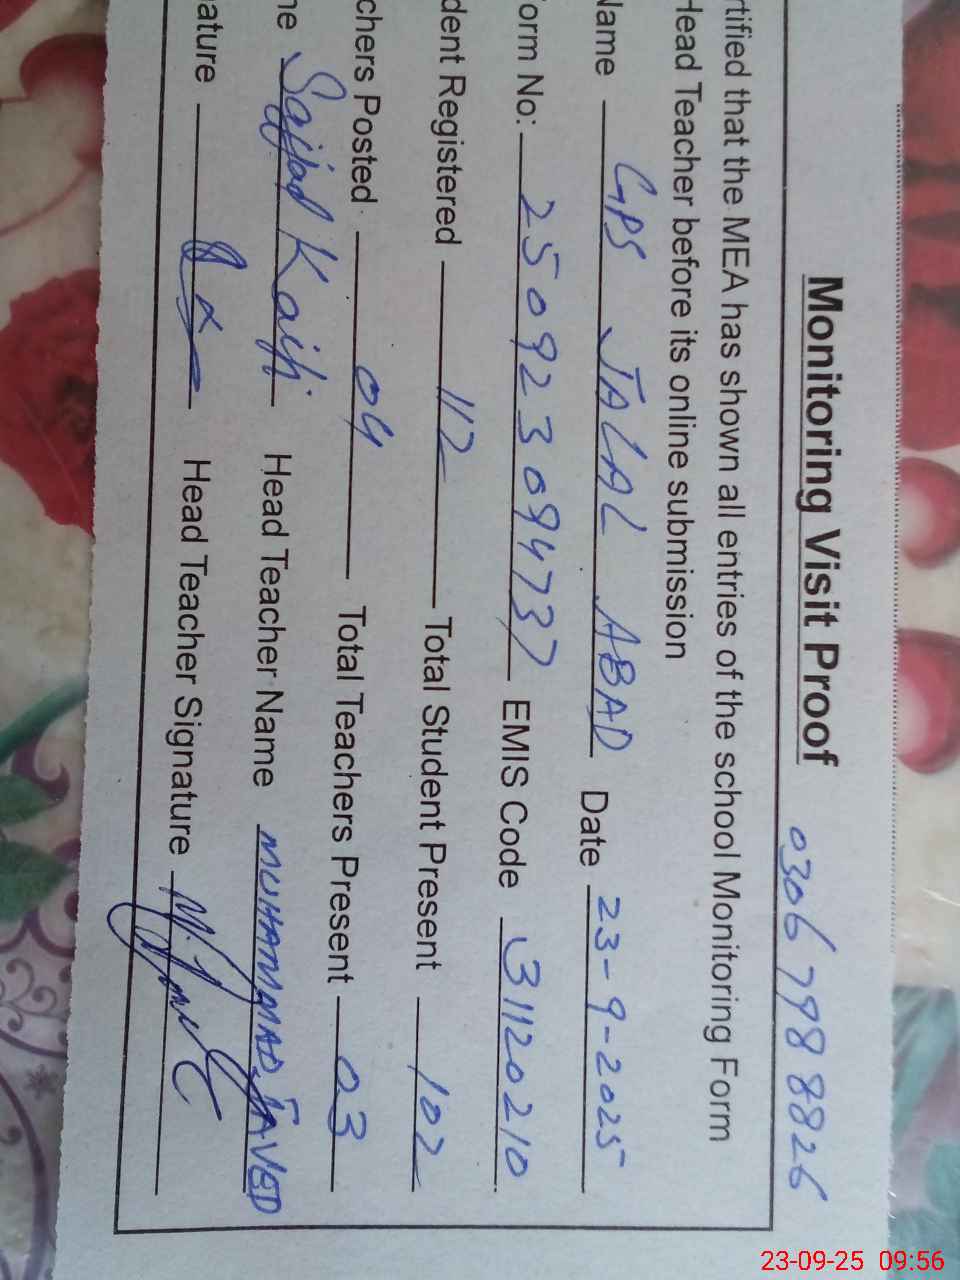 Monitoring Visit Proof 0306 798 8826
rtified that the MEA has shown all entries of the school Monitoring Form
Head Teacher before its online submission
Name GPS JALAL ABAD Date 23-9-2025
orm No: 250923094737 EMIS Code 31120210
dent Registered 112 Total Student Present 102
chers Posted 04 Total Teachers Present 03
me Sajjad Head Teacher Name MUHAMMAD JAVED
nature Head Teacher Signature
23-09-25 09:56